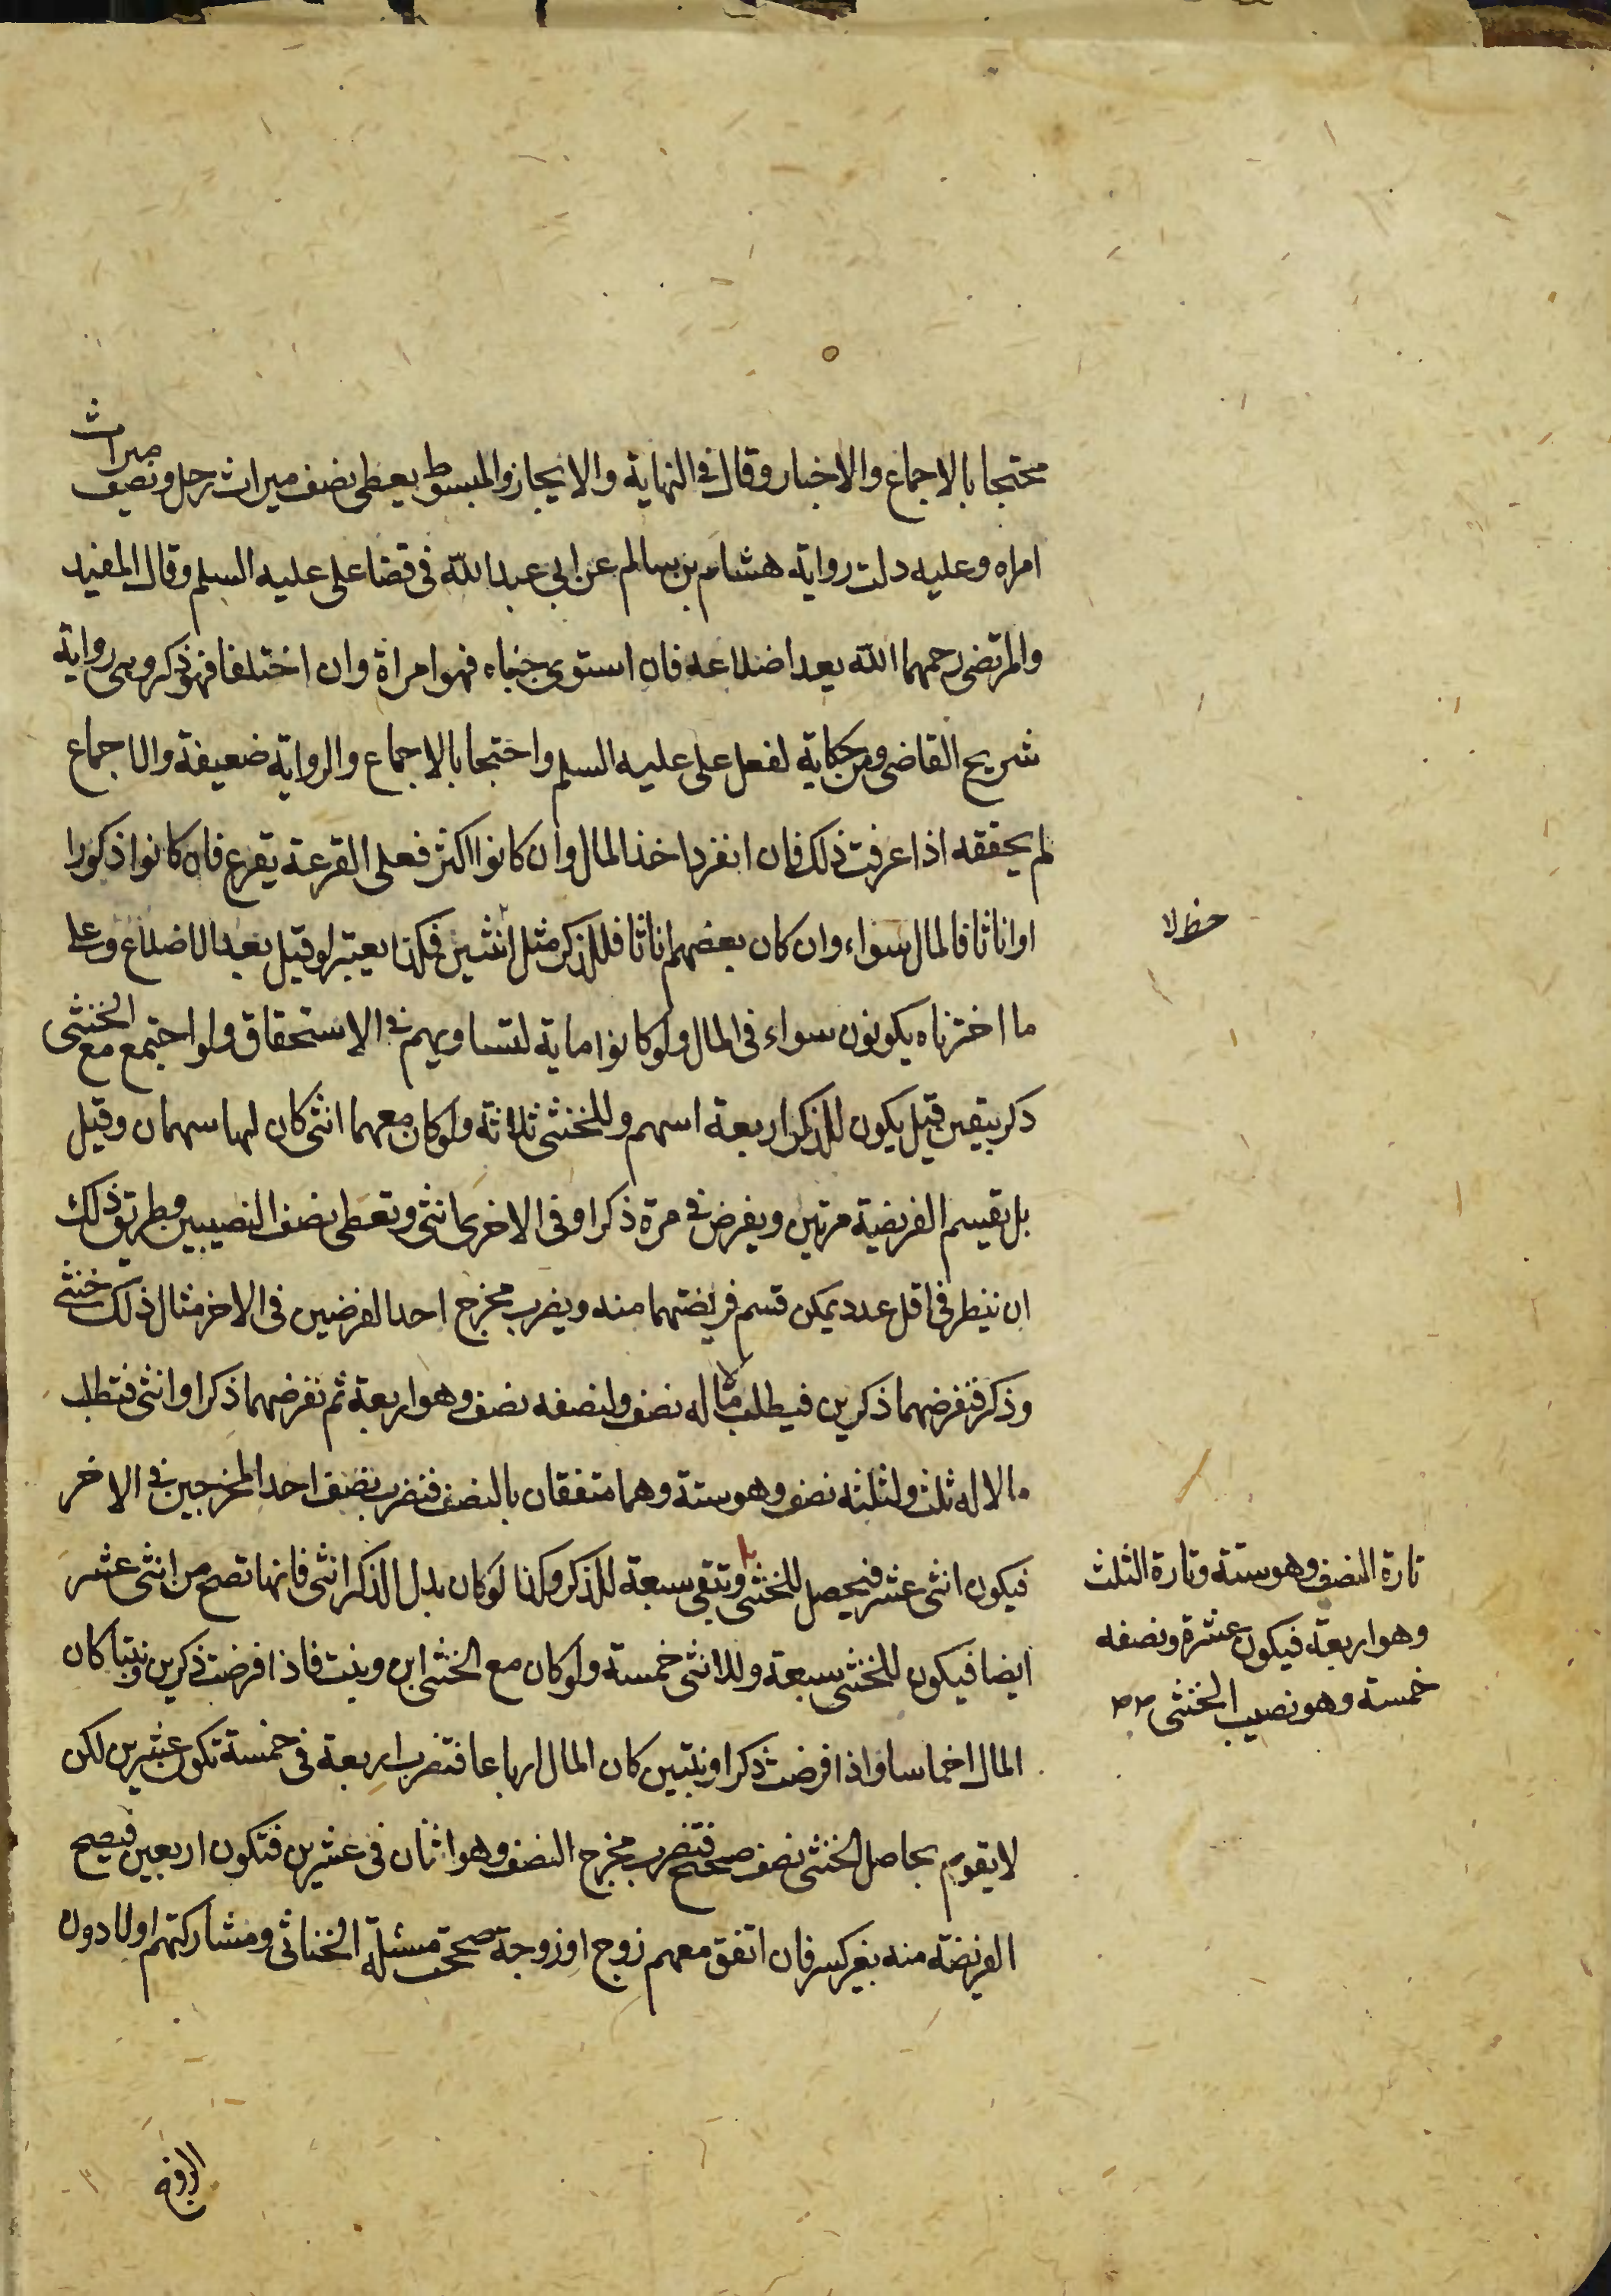 محتجا بالاجماع والاخبار وقال في النهاية والايجاز والمبسوط يعطى نصف ميراث رجل ونصف ميراث
امراه وعليه دلت رواية هشام بن سالم عن ابي عبد الله في قضا على عليه السلم وقال المفيد
والمرتضى رحمهما الله يعد اضلاعه فان استوى جنباه فهو امراة وان اختلفا فهو ذكر وهى رواية
شريح القاضى وهى حكاية لفعل على عليه السلم واحتجا بالاجماع والرواية ضعيفة والاجماع
لم يحققه اذا عرفت ذلك فان انفرد اخذ المال وان كانوا اكثر فعلى القرعة يقرع فان كانوا ذكورا
او اناثا فالمال سواء وان كان بعضهم اناثا فللذكر مثل انثيين وكذا يعتبر لو قيل بعد الاضلاع وعلى
حظ لا
ما اخترناه يكونون سواء فى المال ولو كانوا ماية لتساويهم في الاستحقاق ولو اجتمع مع الخنثى
ذكر بيقين قيل يكون للذكر اربعة اسهم وللخنثى ثلاثة ولو كان معهما انثى كان لها سهمان وقيل
بل تقسم الفريضة مرتين ويفرض في مرة ذكرا وفى الاخرى انثى وتعطى نصف النصيبين وطريق ذلك
ان ينظر فى اقل عدد يمكن قسم فريضتهما منه ويضرب مخرج احد الفرضين فى الاخر مثال ذلك خنثى
وذكر فتفرضهما ذكرين فيطلب مالا له نصف ولنصفه نصف وهو اربعة ثم تفرضهما ذكرا وانثى فتطلب
مالا له ثلث ولثلثه نصف وهو ستة وهما متفقان بالنصف فتضرب نصف احد المخرجين في الاخر
فيكون اثنى عشر فيحصل للخنثى وتبقى سبعة للذكر وكذا لو كان بدل الذكر انثى فانها تصح من اثنى عشر
تارة النصف وهو ستة وتارة الثلث
وهو اربعة فيكون عشرة ونصفه
خمسة وهو نصيب الخنثى
ايضا فيكون للخنثى سبعة وللانثى خمسة ولو كان مع الخنثى ابن وبنت فاذا فرضت ذكرين وبنتا كان
المال اخماسا واذا فرضت ذكرا وبنتين كان المال ارباعا فتضرب اربعة فى خمسة تكون عشرين لكن
لا يقوم بحاصل الخنثى نصف صحيح فتضرب مخرج النصف وهو اثنان فى عشرين فتكون اربعين فتصح
الفريضة منه بغير كسر فان اتفق معهم زوج او زوجة صححت مسئلة الخناثى ومشاركتهم اولا دون
الزوج